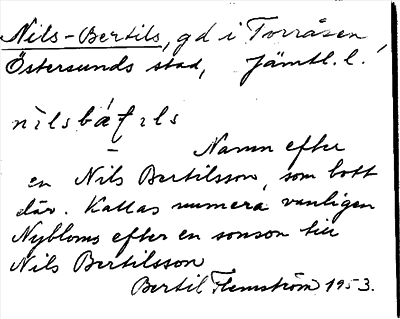 Nils-Bertils, gd i Torråsen
Östersunds stad, Jämtl. l.
Namn efter
en Nils Bertilsson, som bott
där. Kallas numera vanligen
Nybloms efter en sonson till
Nils Bertilsson
Bertil Flemström 1953.